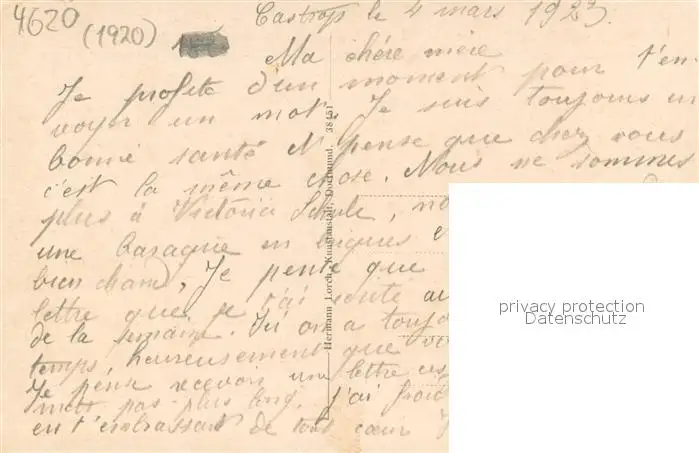 4620
(1920)
Castrop le 4 mars 192
Ma chère mère
Je profite d'un moment pour t'en
voyer un mot. Je suis toujours en
bonne santé Je pense que chez vous
c'est la même chose. Nous ne sommes
plus à Victoria Schule,
une baraque en briques
bien chaud, Je pense que
lettre que je t'ai
de la semaine. Ici on a toujo
temps, heureusement que
Je pense recevoir une lettre ces
pas plus long. J'ai froid
en t'embrassant de tout cœur
Hermann Lorch, Kunstanstalt, Dortmund. 38451
privacy protection
Datenschutz